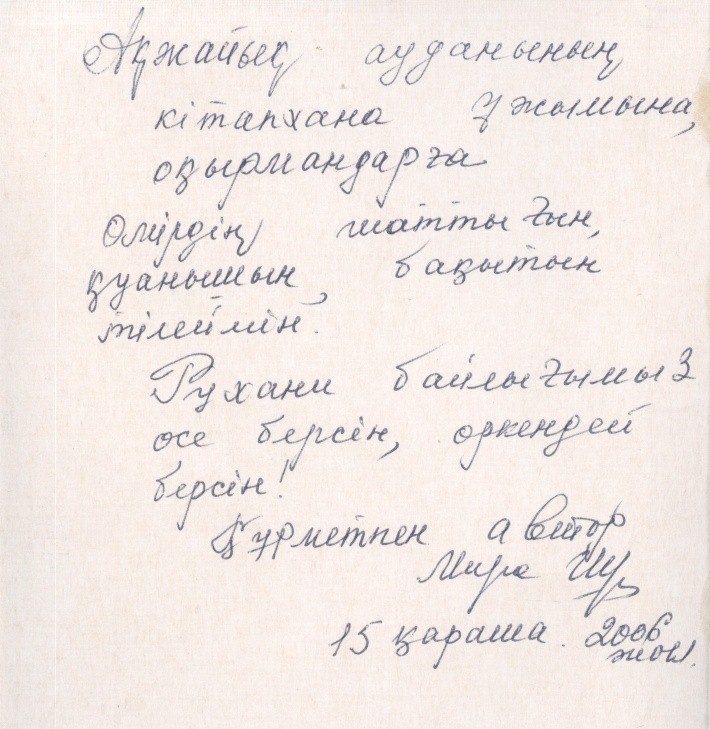 Ақжайық ауданының
кітапхана ұжымына,
оқырмандарға
Өмірдің шаттығын,
қуанышын, бақытын
тілеймін.
Рухани байлығымыз
өсе берсін, өркендей
берсін!
Құрметпен автор
Мира
15 қараша. 2006
жыл.